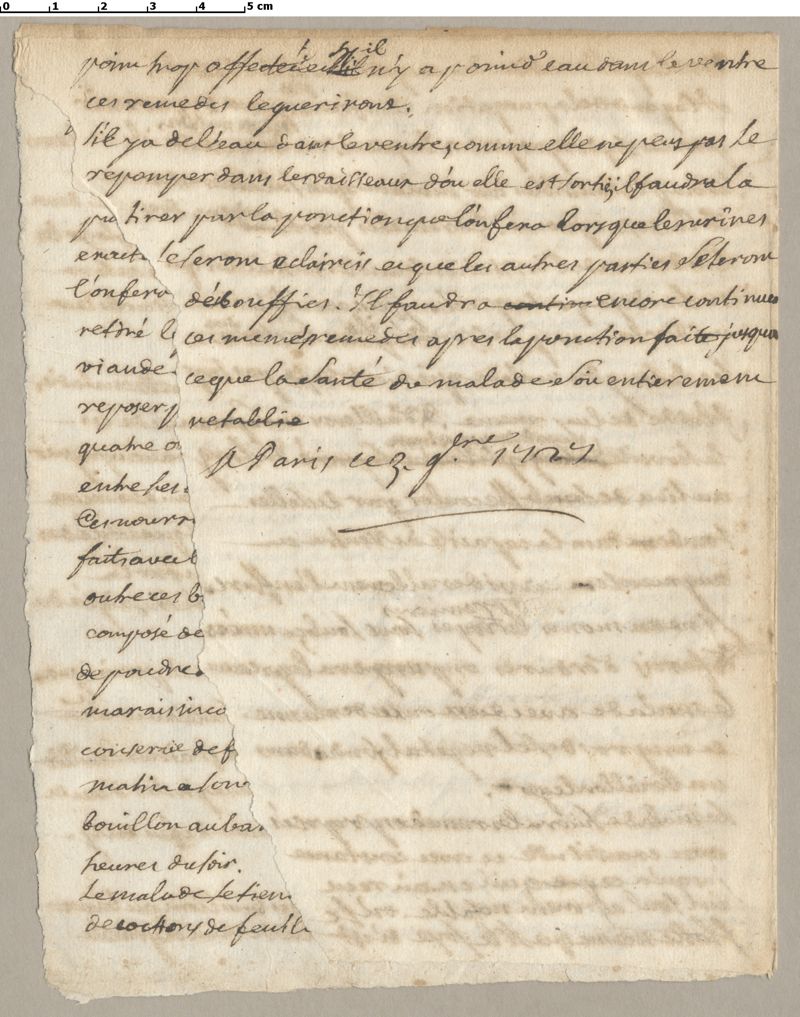 0 1 2 3 4 5 cm
point trop affectées et s'il n'y a point d'eau dans le ventre
ces remedes le queriront.
s'il y a de l'eau dans le ventre, comme elle ne peus pas le
repomper dans les vaisseaux d'ou elle est sortie, il faudra la
tirer par la ponction que l'on fera lorsque les urines
seront eclaircis et que les autres parties seseront
débouffies. Il faudra contin encore continuer
ces meme remedes apres la ponction faite jusqua
ceque la santé du malade soit entierement
retablie
A Paris ce 3. 9.bre 1727
l'onfera
retiré l
viande
reposer p
quatre o
entre les
Ces nourr
faits avec l
outre ces b
composé de
de poudre
marais inco
conserve de f
matin a son
bouillon au ba
heures du soir.
Le malade se tien
de cochons de feuill